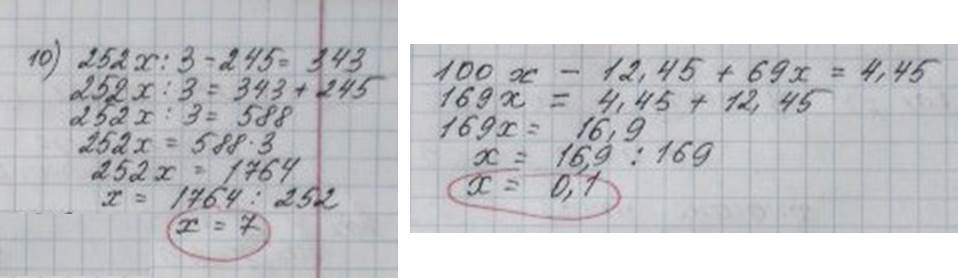 10) 252x : 3 - 245 = 343
252x : 3 = 343 + 245
252x : 3 = 588
252x = 588 · 3
252x = 1764
x = 1764 : 252
x = 7
100x - 12,45 + 69x = 4,45
169x = 4,45 + 12,45
169x = 16,9
x = 16,9 : 169
x = 0,1